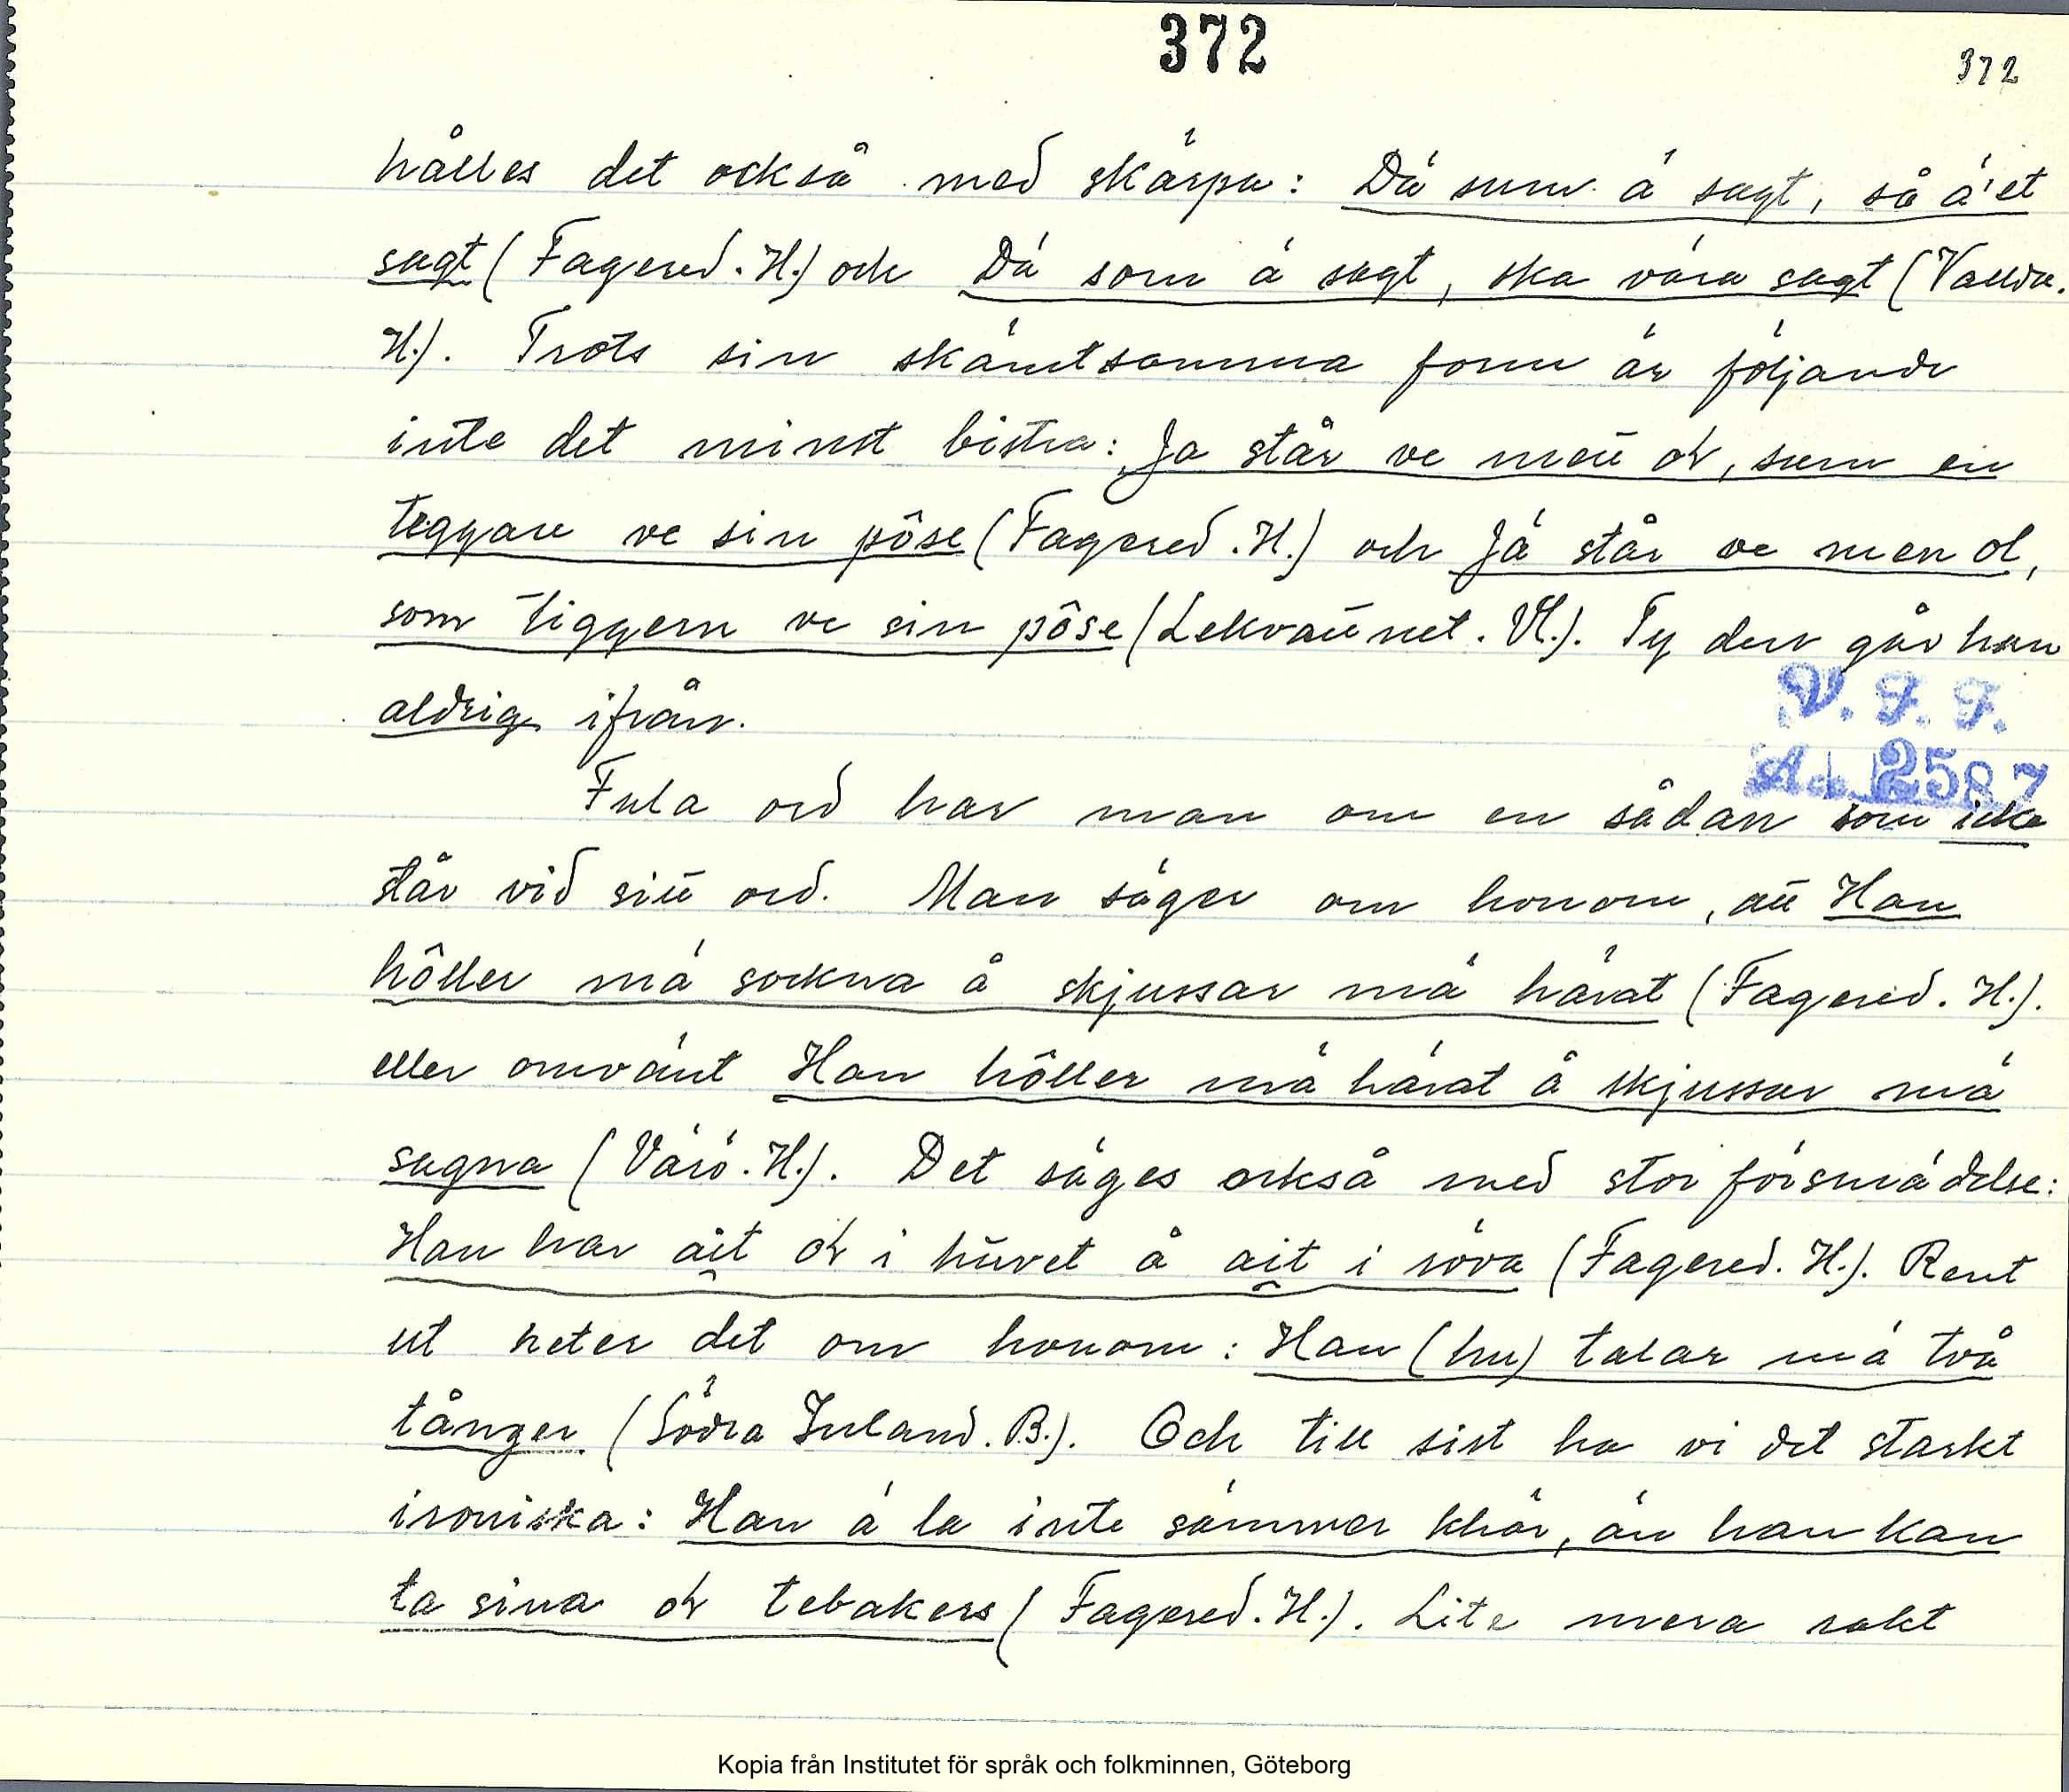 372
372
hålles det också med skärpa: Dä sum ä sagt, så ä'et
sagt (Fagered. H.) och Dä som ä sagt, ska vära sagt (Vallda.
H.). Trots sin skämtsamma form är följande
inte det minst bistra: Ja står ve mett ol, sum en
teggare ve sin pôse (Fagered. H.) och Jä står ve men ol,
som tiggern ve sin pôse (Lekvattnet. Vl.). Ty den går han
aldrig ifrån.
V. F. F.
Acc 2587
Fula ord har man om en sådan som icke
står vid sitt ord. Man säger om honom, att Han
hôller mä sockna å skjussar mä härat (Fagered. H.).
eller omvänt Han hôller mä härat å skjussar mä
sagna (Värö. H.). Det säges också med stor försmädelse:
Han har ait ol i huvet å ait i röva (Fagered. H.). Rent
ut heter det om honom: Han (hu) talar mä två
tånger (Södra Inland. B.). Och till sist ha vi det starkt
ironiska: Han ä la inte sämmer khär, än han kan
ta sina ol tebakers (Fagered. H.). Lite mera rakt
Kopia från Institutet för språk och folkminnen, Göteborg